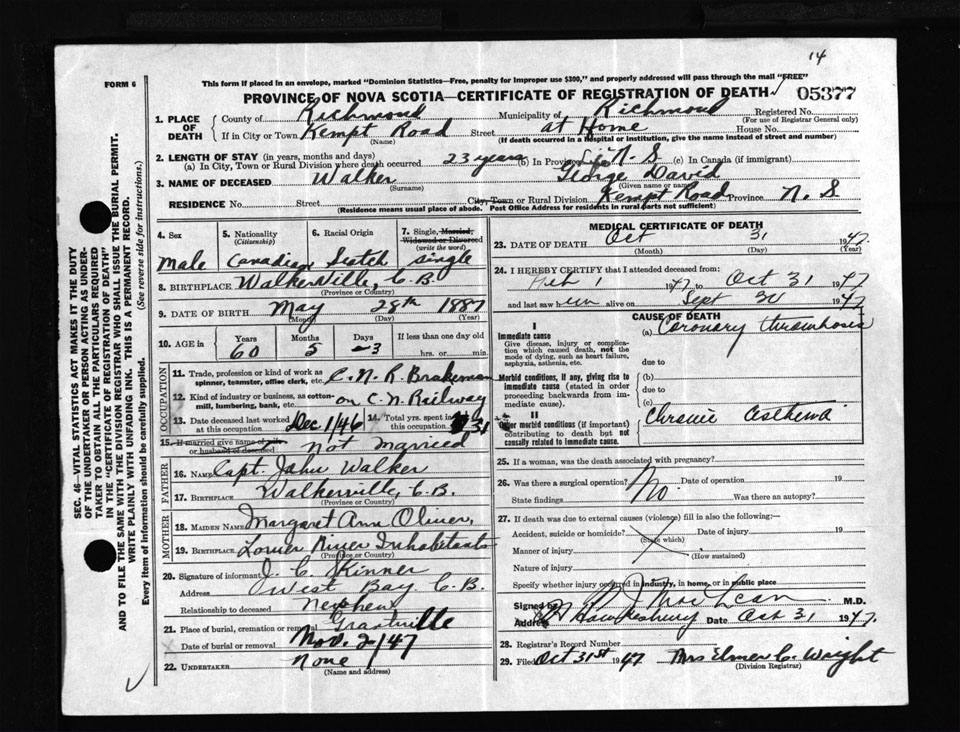 14
FORM 6
This form if placed in an envelope, marked "Dominion Statistics—Free, penalty for improper use $300," and properly addressed will pass through the mail "FREE"
PROVINCE OF NOVA SCOTIA—CERTIFICATE OF REGISTRATION OF DEATH
05377
1. PLACE OF DEATH
County of Richmond
Municipality of Richmond
Registered No.
(For use of Registrar General only)
If in City or Town Kempt Road Street at Home House No.
(Name)
(If death occurred in a hospital or institution, give the name instead of street and number)
2. LENGTH OF STAY (in years, months and days)
(a) In City, Town or Rural Division where death occurred 23 years (b) In Province Life N. S (c) In Canada (if immigrant)
3. NAME OF DECEASED Walker George David
(Surname) (Given name or names)
RESIDENCE No. Street City, Town or Rural Division Kempt Road Province N. S
(Residence means usual place of abode. Post Office Address for residents in rural parts not sufficient)
4. Sex
Male
5. Nationality
(Citizenship)
Canadian
6. Racial Origin
Scotch
7. Single, Married, Widowed or Divorced
(write the word)
single
8. BIRTHPLACE Walkerville, C. B.
(Province or Country)
9. DATE OF BIRTH May 28th 1887
(Month) (Day) (Year)
10. AGE in
Years Months Days If less than one day old
60 5 3 hrs. or min.
OCCUPATION
11. Trade, profession or kind of work as spinner, teamster, office clerk, etc. C. N. R. Brakeman
12. Kind of industry or business, as cotton-mill, lumbering, bank, etc. on C. N. Railway
13. Date deceased last worked at this occupation Dec 1/46
14. Total yrs. spent in this occupation 31
15. If married give name of wife or husband of deceased Not Married
FATHER
16. Name Capt. John Walker
17. Birthplace Walkerville, C. B.
(Province or Country)
MOTHER
18. Maiden Name Margaret Ann Oliver,
19. Birthplace Lower River Inhabitants
(Province or Country)
20. Signature of informant J. C. Skinner
Address West Bay C. B.
Relationship to deceased Nephew
21. Place of burial, cremation or removal Grantville
Date of burial or removal Nov. 2/47
22. UNDERTAKER None
(Name and address)
MEDICAL CERTIFICATE OF DEATH
23. DATE OF DEATH Oct 31 1947.
(Month) (Day) (Year)
24. I HEREBY CERTIFY that I attended deceased from:
Feb 1 1947 to Oct 31 1947
and last saw him alive on Sept 30 1947
CAUSE OF DEATH
I
Immediate cause
Give disease, injury or complication which caused death, not the mode of dying, such as heart failure, asphyxia, asthenia, etc.
(a) Coronary thrombosis
due to
Morbid conditions, if any, giving rise to immediate cause (stated in order proceeding backwards from immediate cause).
(b)
due to
(c)
II
Other morbid conditions (if important) contributing to death but not causally related to immediate cause.
Chronic Asthma
25. If a woman, was the death associated with pregnancy?
26. Was there a surgical operation? No. Date of operation 19
State findings Was there an autopsy?
27. If death was due to external causes (violence) fill in also the following:—
Accident, suicide or homicide? Date of injury 19
(State which)
Manner of injury
(How sustained)
Nature of injury
Specify whether injury occurred in industry, in home, or in public place
Signed by J MacLean M.D.
Address Hawkesbury Date Oct 31 1947.
28. Registrar's Record Number
29. Filed Oct 31st 1947 Mrs Elmer C. Wright
(Division Registrar)
SEC. 46—VITAL STATISTICS ACT MAKES IT THE DUTY
OF THE UNDERTAKER OR PERSON ACTING AS UNDER-
TAKER TO OBTAIN ALL THE PARTICULARS REQUIRED
IN THE "CERTIFICATE OF REGISTRATION OF DEATH"
AND TO FILE THE SAME WITH THE DIVISION REGISTRAR WHO SHALL ISSUE THE BURIAL PERMIT.
WRITE PLAINLY WITH UNFADING INK. THIS IS A PERMANENT RECORD.
Every item of information should be carefully supplied. (See reverse side for instructions.)